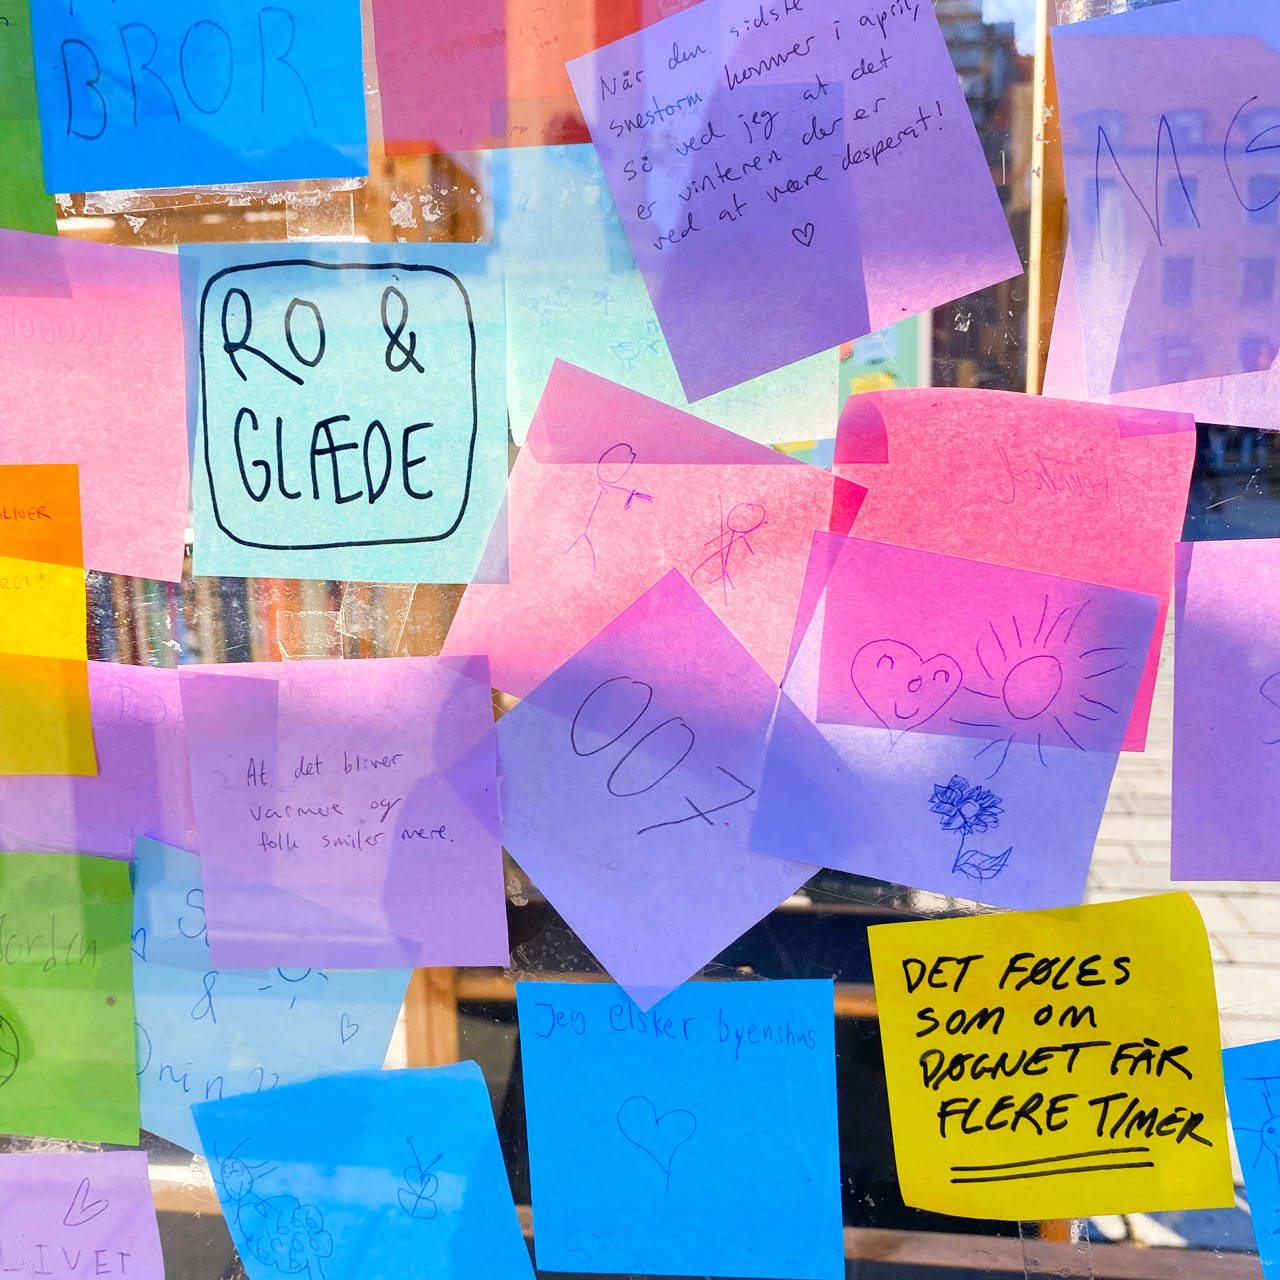 BROR
Når den sidste
snestorm kommer i april,
så ved jeg at det
er vinteren der er
ved at være desperat!
RO &
GLÆDE
BLIVER
At det bliver
varmere og
folk smiler mere.
007
&
Jeg elsker byenshus
DET FØLES
SOM OM
DØGNET FÅR
FLERE TIMER
LIVET